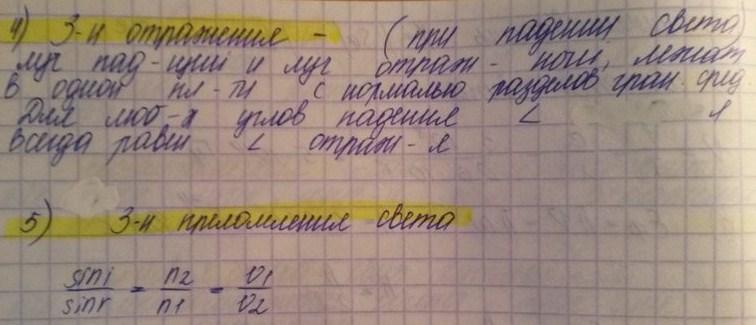 4) З-н отражения - (при падении света
луч пад-щий и луч отраж-ный, лежат
в одной пл-ти с нормалью разделов гран. сред
Для люб-х углов падения < я
всегда равен < отраж-я
5) З-н преломления света
sin i / sin r = n2 / n1 = υ1 / υ2